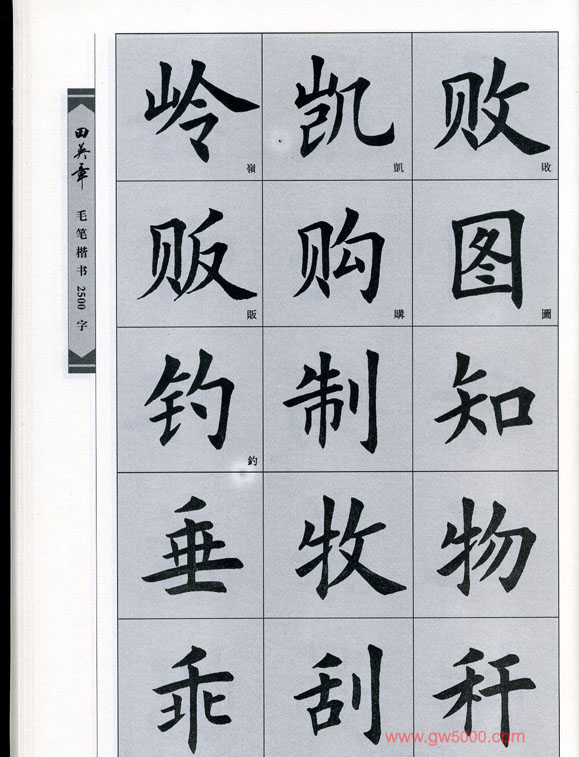 田英章 毛笔楷书 2500 字
岭 凯 败
嶺 凱 敗
贩 购 图
販 購 圖
钓 制 知
釣
垂 牧 物
乖 刮 秆
www.gw5000.com